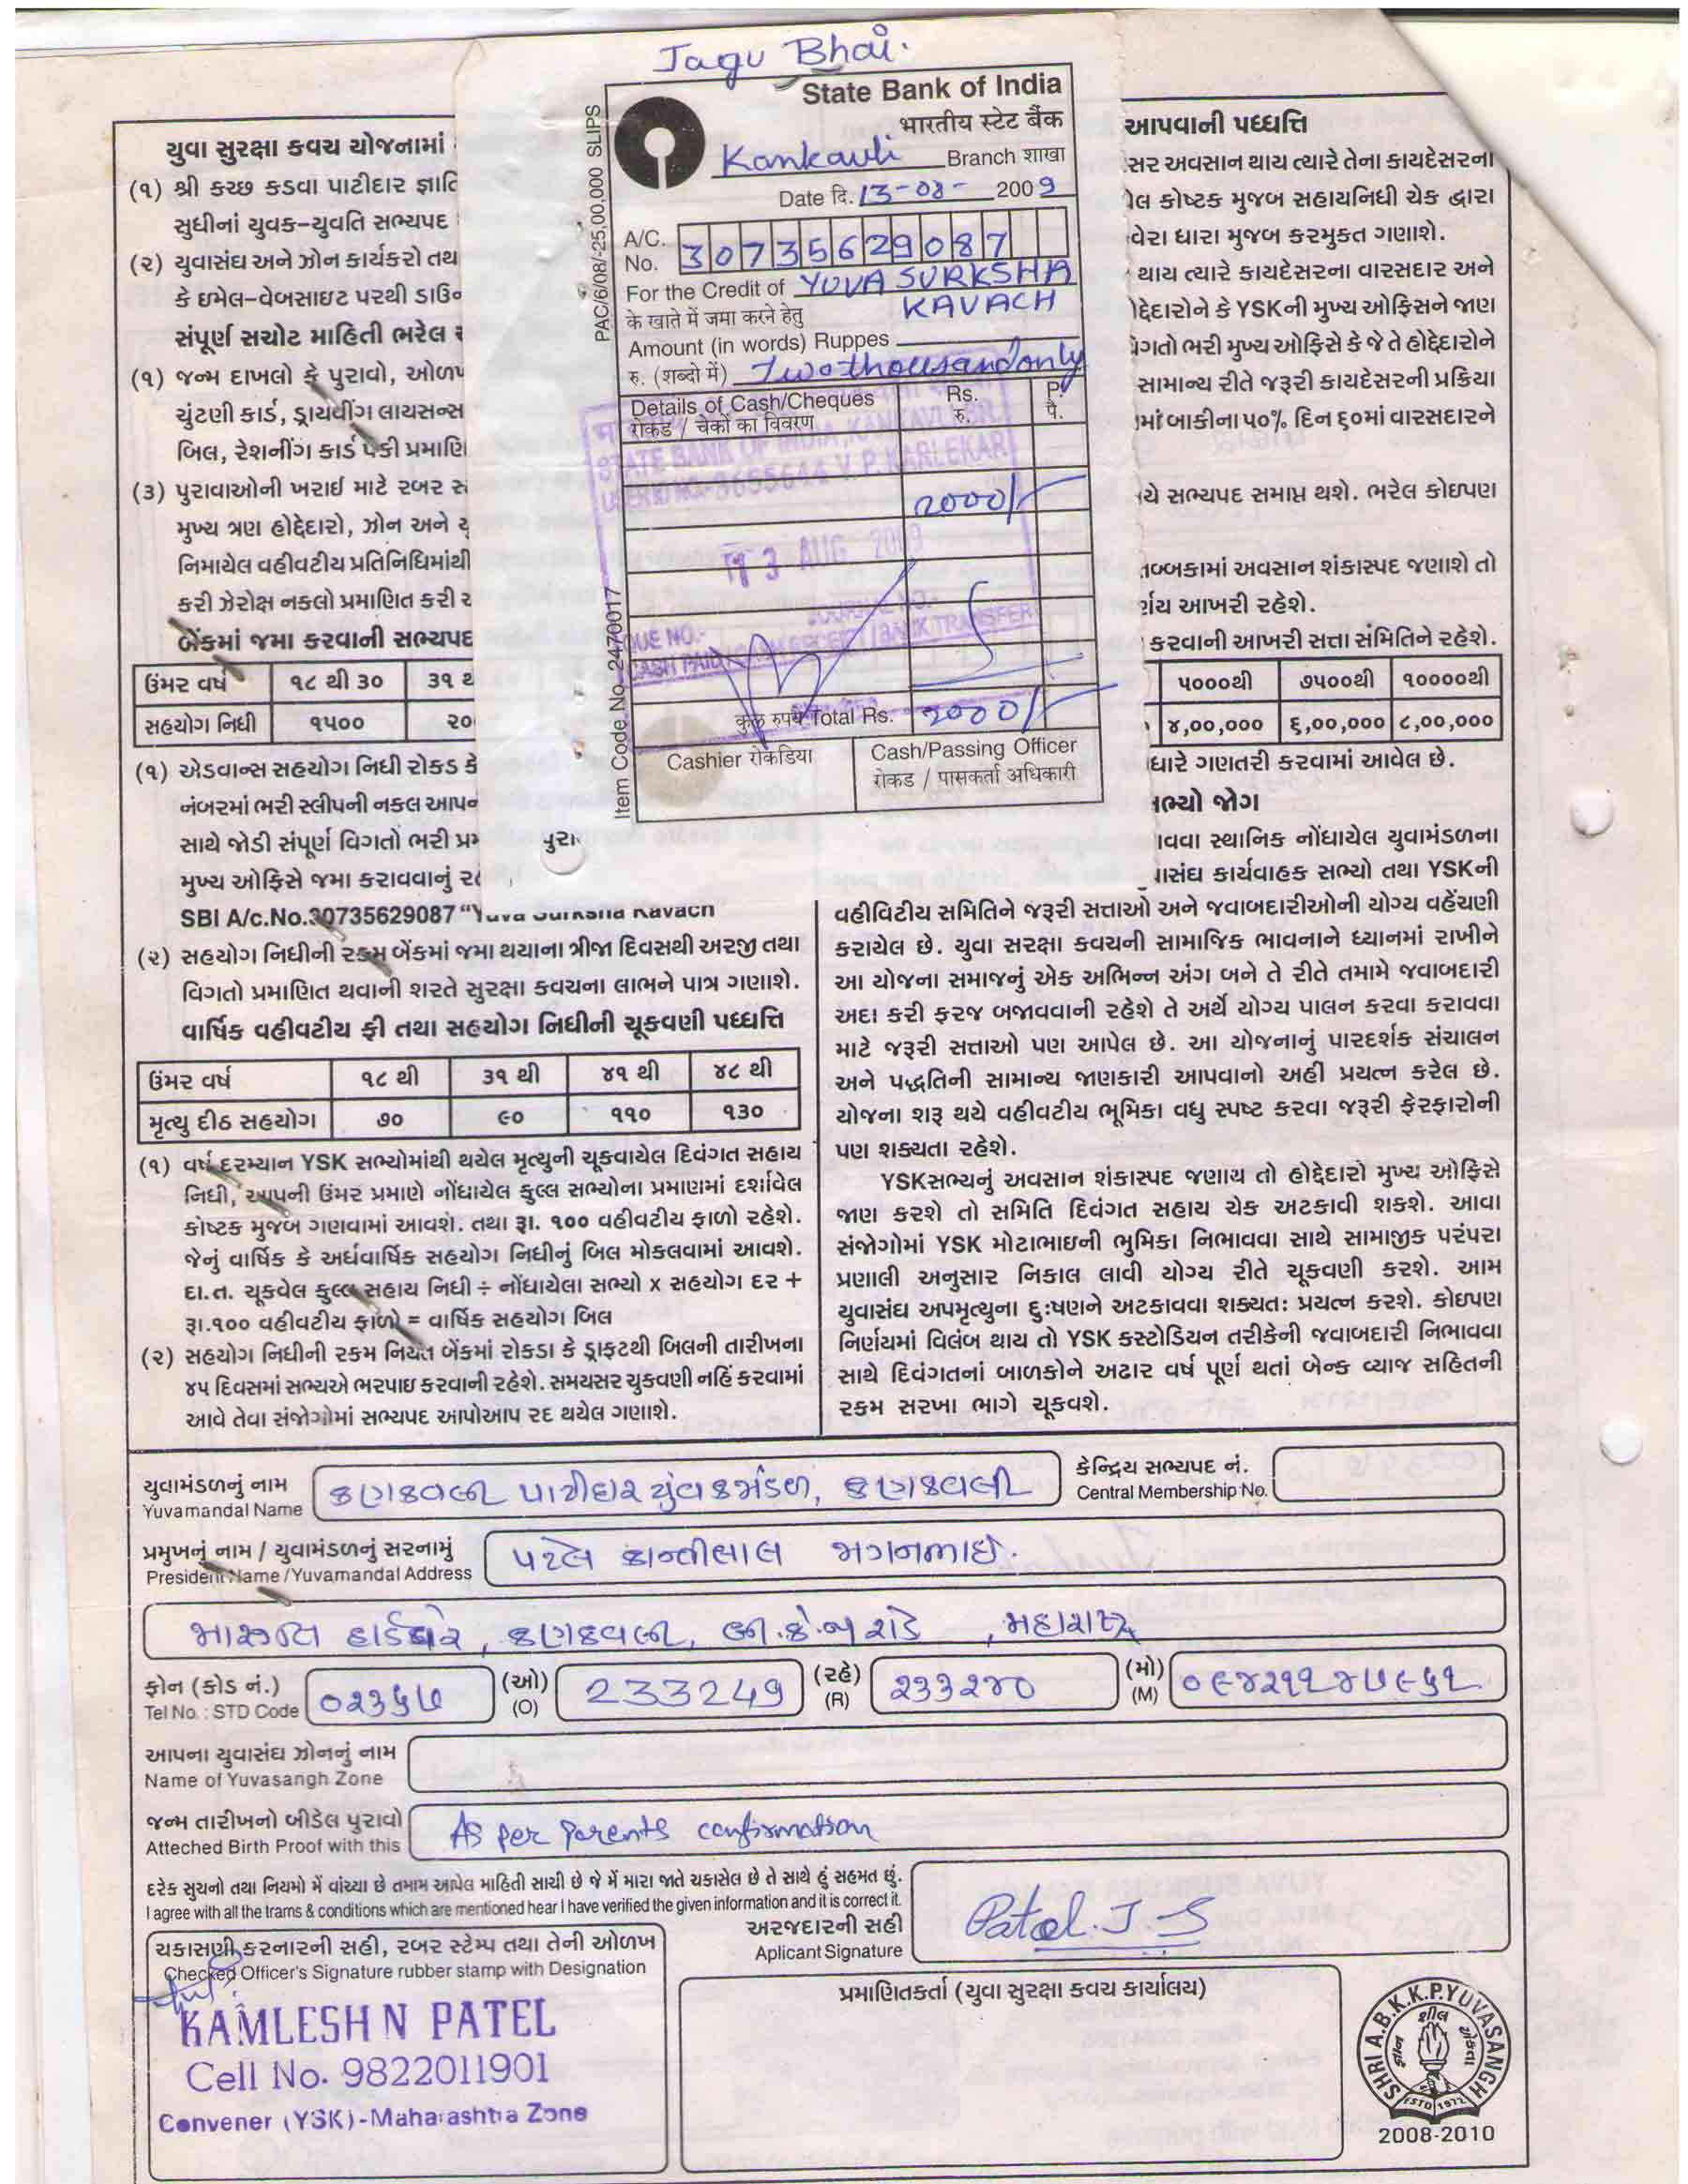 Jagu Bhai.
State Bank of India
भारतीय स्टेट बैंक
Kankavli Branch शाखा
Date दि. 13-08- 2009
A/C. No. 30735629087
For the Credit of YUVA SURKSHA KAVACH
के खाते में जमा करने हेतु
Amount (in words) Ruppes
रु. (शब्दो में) Two thousand only
Details of Cash/Cheques Rs. P.
रोकड / चेकों का विवरण रु. पै.
2000/-
STATE BANK OF INDIA, KANKAVLI BR.
V.P.KARLEKAR
13 AUG 2009
कुल रुपये Total Rs. 2000/-
Cashier रोकडिया
Cash/Passing Officer
रोकड / पासकर्ता अधिकारी
PAC/6/08/-25,00,000 SLIPS
Item Code No. 2470017
યુવા સુરક્ષા કવચ યોજનામાં
(૧) શ્રી કચ્છ કડવા પાટીદાર જ્ઞાતિ
સુધીનાં યુવક-યુવતિ સભ્યપદ
(૨) યુવાસંઘ અને ઝોન કાર્યકરો તથ
કે ઇમેલ-વેબસાઇટ પરથી ડાઉન
સંપૂર્ણ સચોટ માહિતી ભરેલ
(૧) જન્મ દાખલો કે પુરાવો, ઓળખ
ચુંટણી કાર્ડ, ડ્રાયવીંગ લાયસન્સ
બિલ, રેશનીંગ કાર્ડ પૈકી પ્રમાણિ
(૩) પુરાવાઓની ખરાઈ માટે રબર સ
મુખ્ય ત્રણ હોદ્દેદારો, ઝોન અને ય
નિમાયેલ વહીવટીય પ્રતિનિધિમાંથી
કરી ઝેરોક્ષ નકલો પ્રમાણિત કરી
બેંકમાં જમા કરવાની સભ્યપદ
ઉંમર વર્ષ ૧૮ થી ૩૦ ૩૧ થ
સહયોગ નિધી ૧૫૦૦ ૨૦
(૧) એડવાન્સ સહયોગ નિધી રોકડ કે
નંબરમાં ભરી સ્લીપની નકલ આપન
સાથે જોડી સંપૂર્ણ વિગતો ભરી પ્રમ પુરા
મુખ્ય ઓફિસે જમા કરાવવાનું ર
SBI A/c.No.30735629087 "Yuva Surksha Kavach
(૨) સહયોગ નિધીની રકમ બેંકમાં જમા થયાના ત્રીજા દિવસથી અરજી તથા
વિગતો પ્રમાણિત થવાની શરતે સુરક્ષા કવચના લાભને પાત્ર ગણાશે.
વાર્ષિક વહીવટીય ફી તથા સહયોગ નિધીની ચૂકવણી પધ્ધત્તિ
ઉંમર વર્ષ ૧૮ થી ૩૧ થી ૪૧ થી ૪૮ થી
મૃત્યુ દીઠ સહયોગ ૭૦ ૯૦ ૧૧૦ ૧૩૦
(૧) વર્ષ દરમ્યાન YSK સભ્યોમાંથી થયેલ મૃત્યુની ચૂકવાયેલ દિવંગત સહાય
નિધી, આપની ઉંમર પ્રમાણે નોંધાયેલ કુલ્લ સભ્યોના પ્રમાણમાં દર્શાવેલ
કોષ્ટક મુજબ ગણવામાં આવશે. તથા રૂા. ૧૦૦ વહીવટીય ફાળો રહેશે.
જેનું વાર્ષિક કે અર્ધવાર્ષિક સહયોગ નિધીનું બિલ મોકલવામાં આવશે.
દા.ત. ચૂકવેલ કુલ્લ સહાય નિધી ÷ નોંધાયેલા સભ્યો x સહયોગ દર +
રૂા.૧૦૦ વહીવટીય ફાળો = વાર્ષિક સહયોગ બિલ
(૨) સહયોગ નિધીની રકમ નિયત બેંકમાં રોકડા કે ડ્રાફટથી બિલની તારીખના
૪૫ દિવસમાં સભ્યએ ભરપાઇ કરવાની રહેશે. સમયસર ચુકવણી નહિં કરવામાં
આવે તેવા સંજોગોમાં સભ્યપદ આપોઆપ રદ થયેલ ગણાશે.
આપવાની પધ્ધત્તિ
સર અવસાન થાય ત્યારે તેના કાયદેસરના
ેલ કોષ્ટક મુજબ સહાયનિધી ચેક દ્વારા
વેરા ધારા મુજબ કરમુકત ગણાશે.
થાય ત્યારે કાયદેસરના વારસદાર અને
ોદ્દેદારોને કે YSKની મુખ્ય ઓફિસને જાણ
વેગતો ભરી મુખ્ય ઓફિસે કે જે તે હોદ્દેદારોને
સામાન્ય રીતે જરૂરી કાયદેસરની પ્રક્રિયા
માં બાકીના ૫૦% દિન ૬૦માં વારસદારને
યે સભ્યપદ સમાપ્ત થશે. ભરેલ કોઇપણ
તબ્બકામાં અવસાન શંકાસ્પદ જણાશે તો
ર્ણય આખરી રહેશે.
કરવાની આખરી સત્તા સંમિતિને રહેશે.
૫૦૦૦થી ૭૫૦૦થી ૧૦૦૦૦થી
૪,૦૦,૦૦૦ ૬,૦૦,૦૦૦ ૮,૦૦,૦૦૦
ધારે ગણતરી કરવામાં આવેલ છે.
ભ્યો જોગ
ાવવા સ્થાનિક નોંધાયેલ યુવામંડળના
ાસંઘ કાર્યવાહક સભ્યો તથા YSKની
વહીવિટીય સમિતિને જરૂરી સત્તાઓ અને જવાબદારીઓની યોગ્ય વહેંચણી
કરાયેલ છે. યુવા સરક્ષા કવચની સામાજિક ભાવનાને ધ્યાનમાં રાખીને
આ યોજના સમાજનું એક અભિન્ન અંગ બને તે રીતે તમામે જવાબદારી
અદા કરી ફરજ બજાવવાની રહેશે તે અર્થે યોગ્ય પાલન કરવા કરાવવા
માટે જરૂરી સત્તાઓ પણ આપેલ છે. આ યોજનાનું પારદર્શક સંચાલન
અને પદ્ધતિની સામાન્ય જાણકારી આપવાનો અહીં પ્રયત્ન કરેલ છે.
યોજના શરૂ થયે વહીવટીય ભૂમિકા વધુ સ્પષ્ટ કરવા જરૂરી ફેરફારોની
પણ શક્યતા રહેશે.
YSKસભ્યનું અવસાન શંકાસ્પદ જણાય તો હોદ્દેદારો મુખ્ય ઓફિસે
જાણ કરશે તો સમિતિ દિવંગત સહાય ચેક અટકાવી શકશે. આવા
સંજોગોમાં YSK મોટાભાઇની ભુમિકા નિભાવવા સાથે સામાજીક પરંપરા
પ્રણાલી અનુસાર નિકાલ લાવી યોગ્ય રીતે ચૂકવણી કરશે. આમ
યુવાસંઘ અપમૃત્યુના દુઃષણને અટકાવવા શક્યતઃ પ્રયત્ન કરશે. કોઇપણ
નિર્ણયમાં વિલંબ થાય તો YSK કસ્ટોડિયન તરીકેની જવાબદારી નિભાવવા
સાથે દિવંગતનાં બાળકોને અઢાર વર્ષ પૂર્ણ થતાં બેન્ક વ્યાજ સહિતની
રકમ સરખા ભાગે ચૂકવશે.
યુવામંડળનું નામ કણકવલી પાટીદાર યુવકમંડળ, કણકવલી કેન્દ્રિય સભ્યપદ નં.
Yuvamandal Name Central Membership No.
પ્રમુખનું નામ / યુવામંડળનું સરનામું પટેલ કાન્તીલાલ મગનભાઈ.
President Name /Yuvamandal Address
મારૂતિ હાર્ડવેર, કણકવલી, રોડ, મહારાષ્ટ્ર
ફોન (કોડ નં.) ૦૨૩૬૭ (ઓ) 233249 (રહે) ૨૩૩૨૪૦ (મો) ૦૯૪૨૧૧૪૭૯૬૧
Tel No. : STD Code (O) (R) (M)
આપના યુવાસંઘ ઝોનનું નામ
Name of Yuvasangh Zone
જન્મ તારીખનો બીડેલ પુરાવો As per Parents confirmation
Atteched Birth Proof with this
દરેક સુચનો તથા નિયમો મેં વાંચ્યા છે તમામ આપેલ માહિતી સાચી છે જે મેં મારા જાતે ચકાસેલ છે તે સાથે હું સહમત છું.
I agree with all the trams & conditions which are mentioned hear I have verified the given information and it is correct it.
અરજદારની સહી Patel. J-S
Aplicant Signature
ચકાસણી કરનારની સહી, રબર સ્ટેમ્પ તથા તેની ઓળખ
Checked Officer's Signature rubber stamp with Designation
KAMLESH N PATEL
Cell No. 9822011901
Convener (YSK)-Maharashtra Zone
પ્રમાણિતકર્તા (યુવા સુરક્ષા કવચ કાર્યાલય)
SHRI A.B.K.K.P.YUVASANGH
ESTD 1972
2008-2010